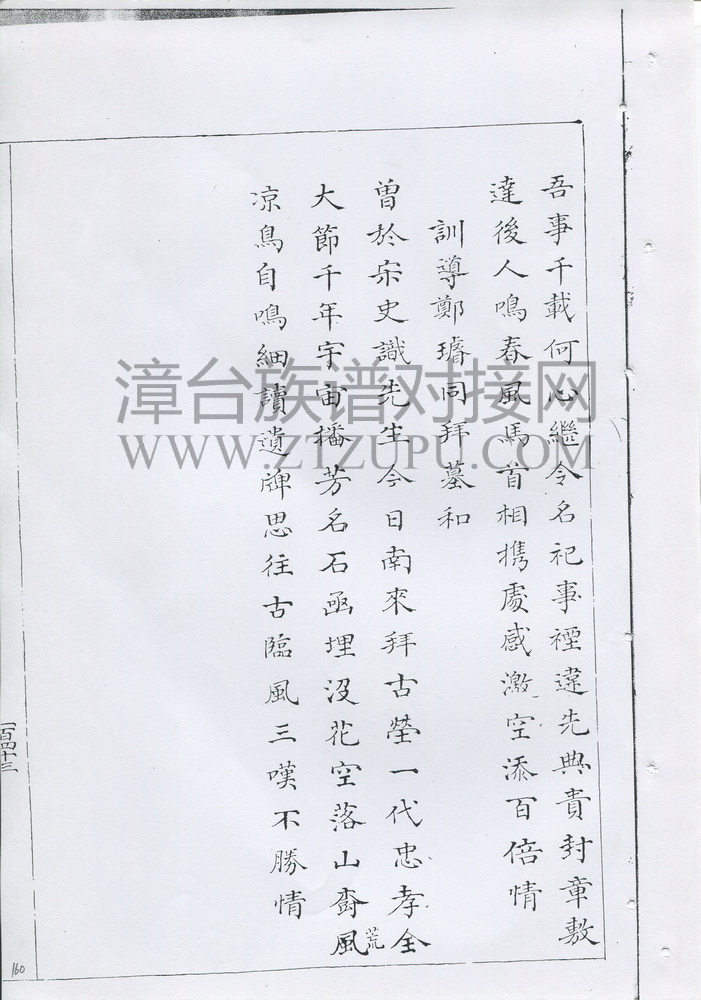 吾事千載何心繼令名祀事禋違先典貴封章敷
達後人鳴春風馬首相攜處感激空添百倍情
訓導鄭璿同拜墓和
曾於宋史識先生今日南來拜古塋一代忠孝全
大節千年宇宙播芳名石函埋沒花空落山齋風
荒
凉鳥自鳴細讀遺碑思往古臨風三嘆不勝情
一百四十三
160
漳台族谱对接网
WWW.ZTZUPU.COM